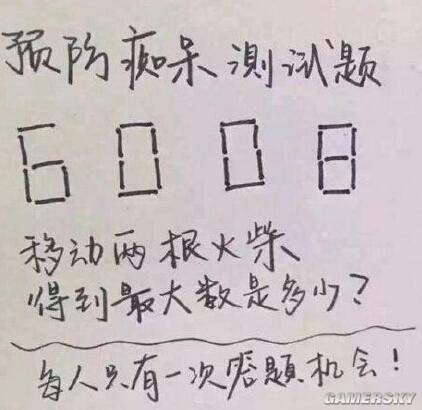 预防痴呆測试题
6008
移动两根火柴
得到最大数是多少?
每人只有一次答題机会!
GAMERSKY